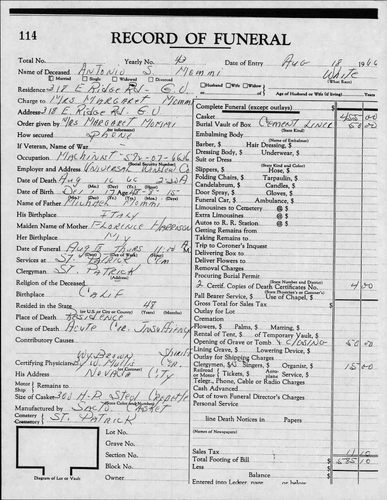 114
RECORD OF FUNERAL
Total No. Yearly No. 43 Date of Entry Aug 18 1966
Name of Deceased Antonio S. Mommi White
Married Single Widowed Divorced Husband Wife Widow (What Race)
Residence 318 E Ridge Rd - G.V. or Age of Husband or Wife (if living) Years
Charge to Mrs Margaret Mommi
Address 318 E Ridge Rd G.V.
Order given by Mrs Margaret Mommi
How secured Phone
If Veteran, Name of War
Occupation Machinist
Employer and Address Universal
Date of Death Aug 66
Date of Birth Oct 17
Name of Father Michael Mommi
His Birthplace Italy
Maiden Name of Mother Florence Harrison
Her Birthplace N.Y.
Date of Funeral Aug Thurs 11:00 A
Services at St. Patrick Cem
Clergyman St. Patrick
Religion of the Deceased
Birthplace Calif
Resided in the State 48
Place of Death Residence
Cause of Death Acute Cor. Insufficiency
Contributory Causes
Certifying Physician
His Address Nevada City
Motor Ship Remains to
Size of Casket
Manufactured by Casket
Cemetery Crematory St. Patrick
Lot No.
Grave No.
Section No.
Block No.
Owner
Diagram of Lot or Vault
Complete Funeral (except outlays) $
Casket 455 00
Burial Vault of Box Cement Liner 50 00
(State Kind)
Embalming Body
(Name of Embalmer)
Barber, $ Hair Dressing, $
Dressing Body, $ Underwear, $
Suit or Dress
(State Kind and Color)
Slippers, $ Hose, $
Folding Chairs, $ Tarpaulin, $
Candelabrum, $ Candles, $
Door Spray, $ Gloves, $
Funeral Car, $ Ambulance, $
Limousines to Cemetery @ $
Extra Limousines @ $
Autos to R. R. Station @ $
Getting Remains from
Taking Remains to
Trip to Coroner's Inquest
Delivering Box to
Deliver Flowers to
Removal Charges
Procuring Burial Permit
(State Number and District)
2 Certif. Copies of Death Certificates No. 4 00
Pall Bearer Service, $ Use of Chapel, $
Gross Total for Sales Tax $
Outlay for Lot
Cremation
Flowers, $ Palms, $ Matting, $
Rental of Tent, $ Temporary Vault, $
Opening of Grave or Tomb & Closing 50 00
Lining Grave, $ Lowering Device, $
Outlay for Shipping Charges
Clergyman, $ Singers, $ Organist, $ 15 00
Railroad or Motor Tickets, $ Aeroplane Service, $
Telegr., Phone, Cable or Radio Charges
Cash Advanced
Out of town Funeral Director's Charges
Personal Service
line Death Notices in Papers
(Names of Newspapers)
Sales Tax 11 10
Total Footing of Bill $ 585 10
Less
Balance $
Entered into Ledger, page or below